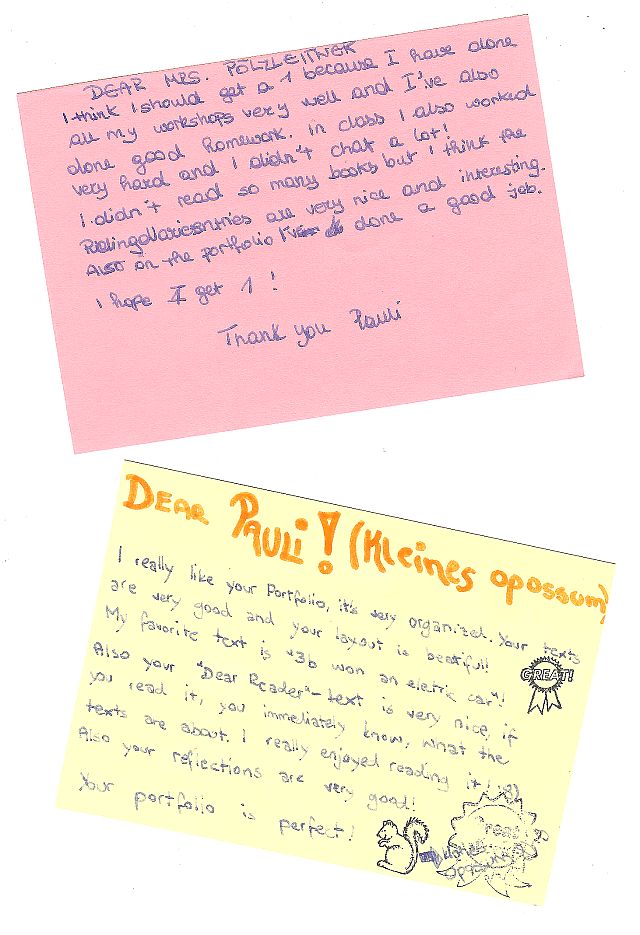 DEAR MRS. PÖLZLEITNER
I think I should get a 1 because I have done
all my workshops very well and I've also
done good homework. In class I also worked
very hard and I didn't chat a lot!
I didn't read so many books but I think the
are very nice and interesting.
Also on the portfolio I've done a good job.
I hope I get 1!
Thank you Pauli
DEAR PAULI! (Kleines opossum)
I really like your Portfolio, it's very organized. Your texts
are very good and your layout is beatiful!
My favorite text is "3b won an eletric car"!
Also your "Dear Reader"-text is very nice, if
you read it, you immediately know, what the
texts are about. I really enjoyed reading it! :8)
Also your reflections are very good!
Your portfolio is perfect!
GREAT!
Great
opossum